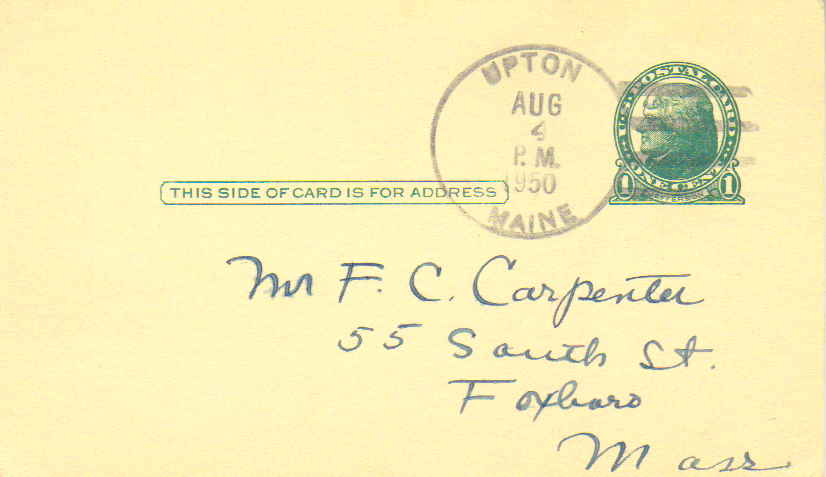 UPTON
AUG
4
P.M.
1950
MAINE
U.S. POSTAL CARD
ONE CENT
1 1
JEFFERSON
THIS SIDE OF CARD IS FOR ADDRESS
Mr F. C. Carpenter
55 South St.
Foxboro
Mass